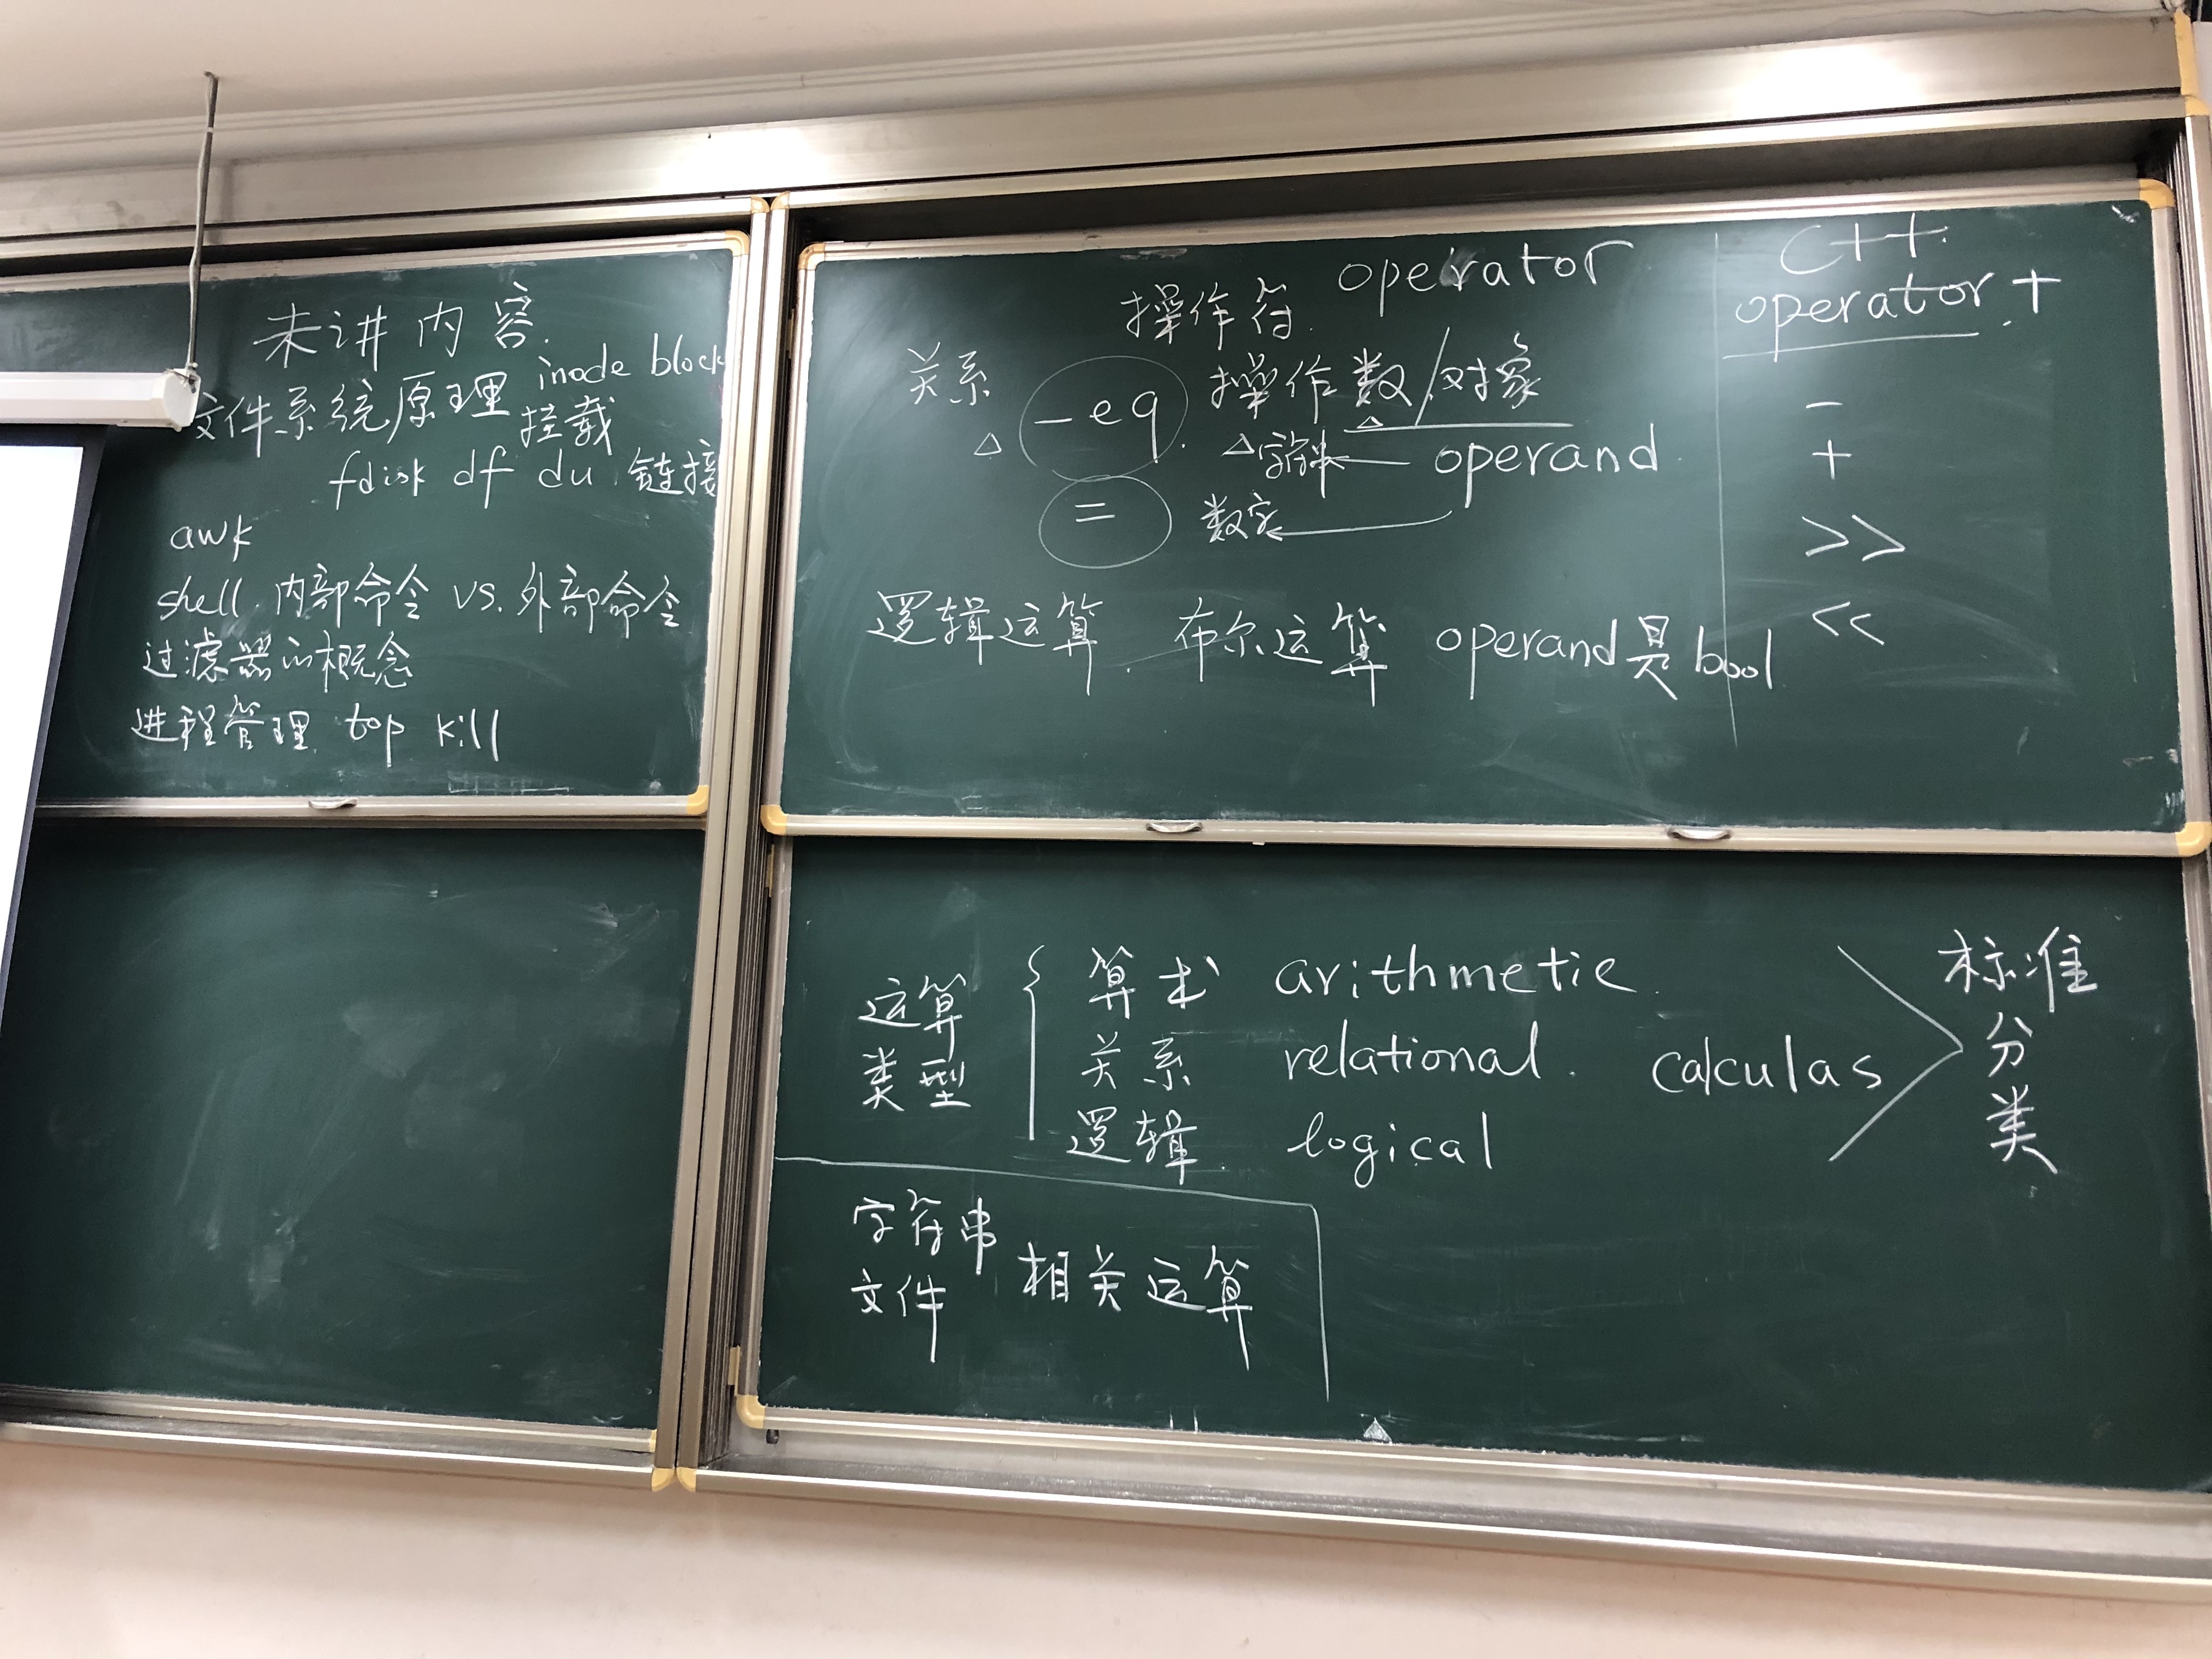 未讲内容
文件系统原理 inode block
挂载
fdisk df du 链接
awk
shell 内部命令 vs. 外部命令
过滤器的概念
进程管理 top kill
操作符 operator
关系 -eq 操作数/对象
字符串 operand
= 数字
逻辑运算 布尔运算 operand是bool
C++
operator+
-
+
>>
<<
运算类型
算术 arithmetic
关系 relational calculas
逻辑 logical
标准分类
字符串
文件 相关运算